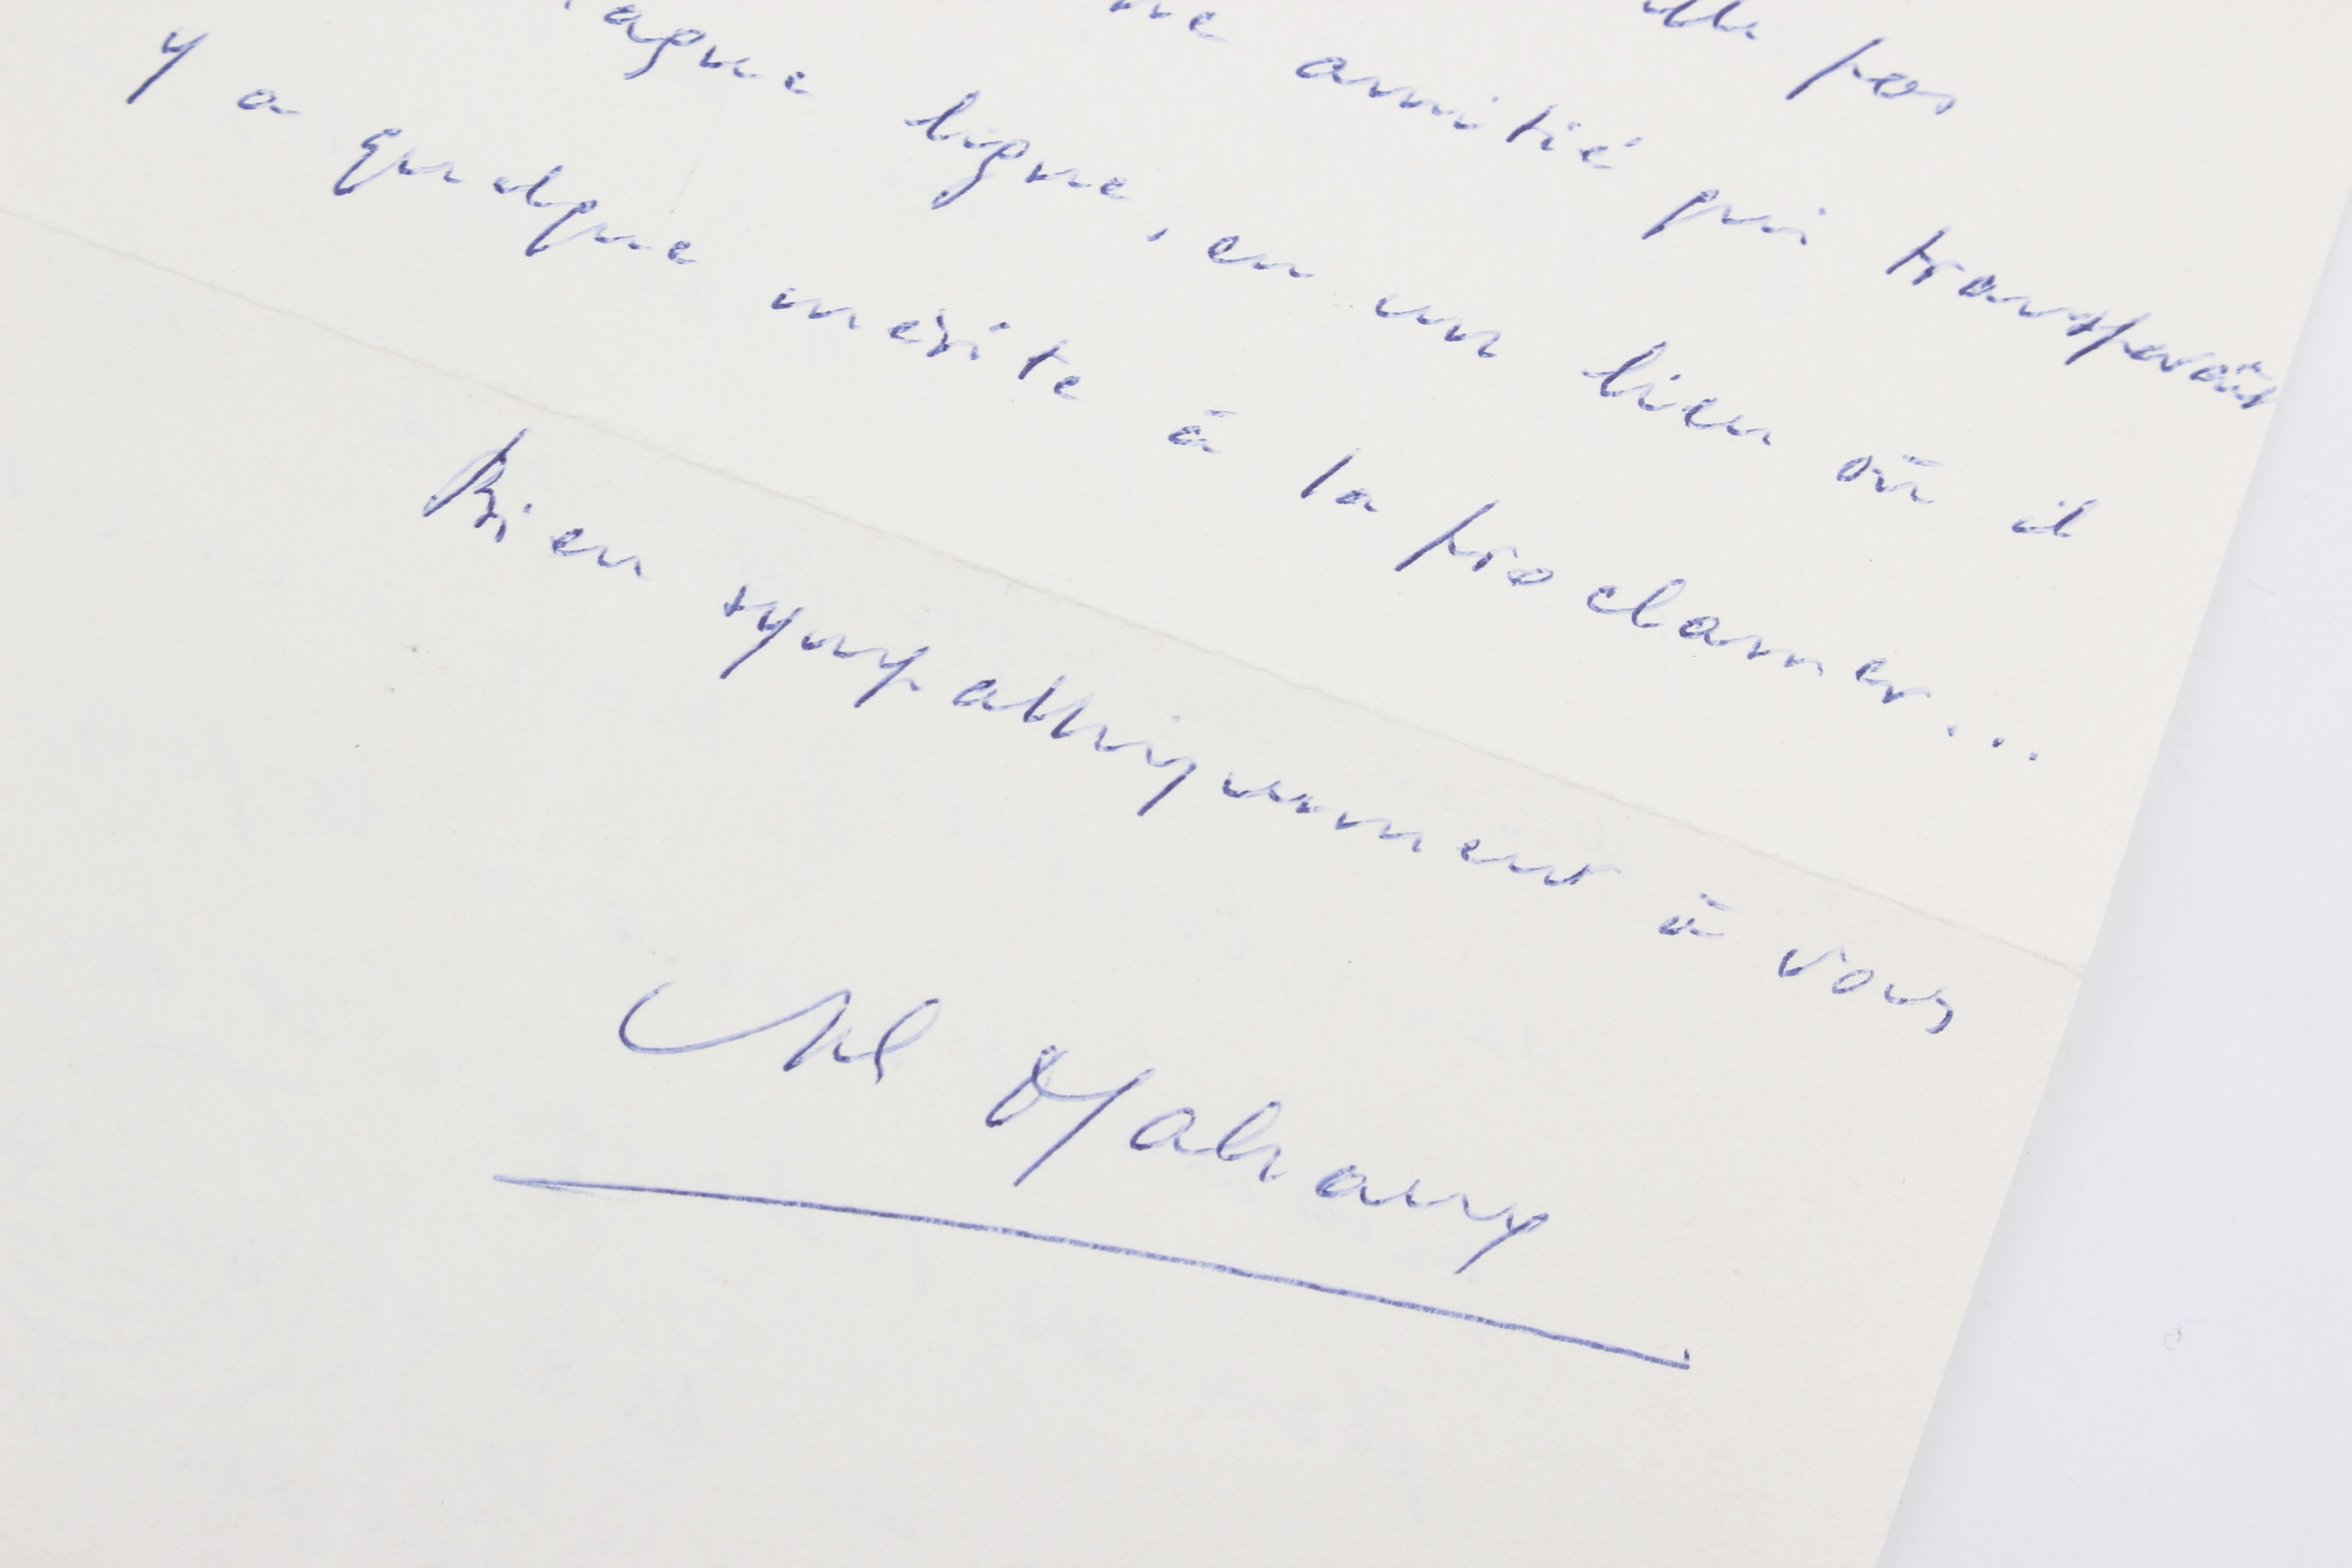 pas
amitié qui transparaît
aque ligne, en un lieu où il
y a quelque mérite à la proclamer...
Bien sympathiquement à vous